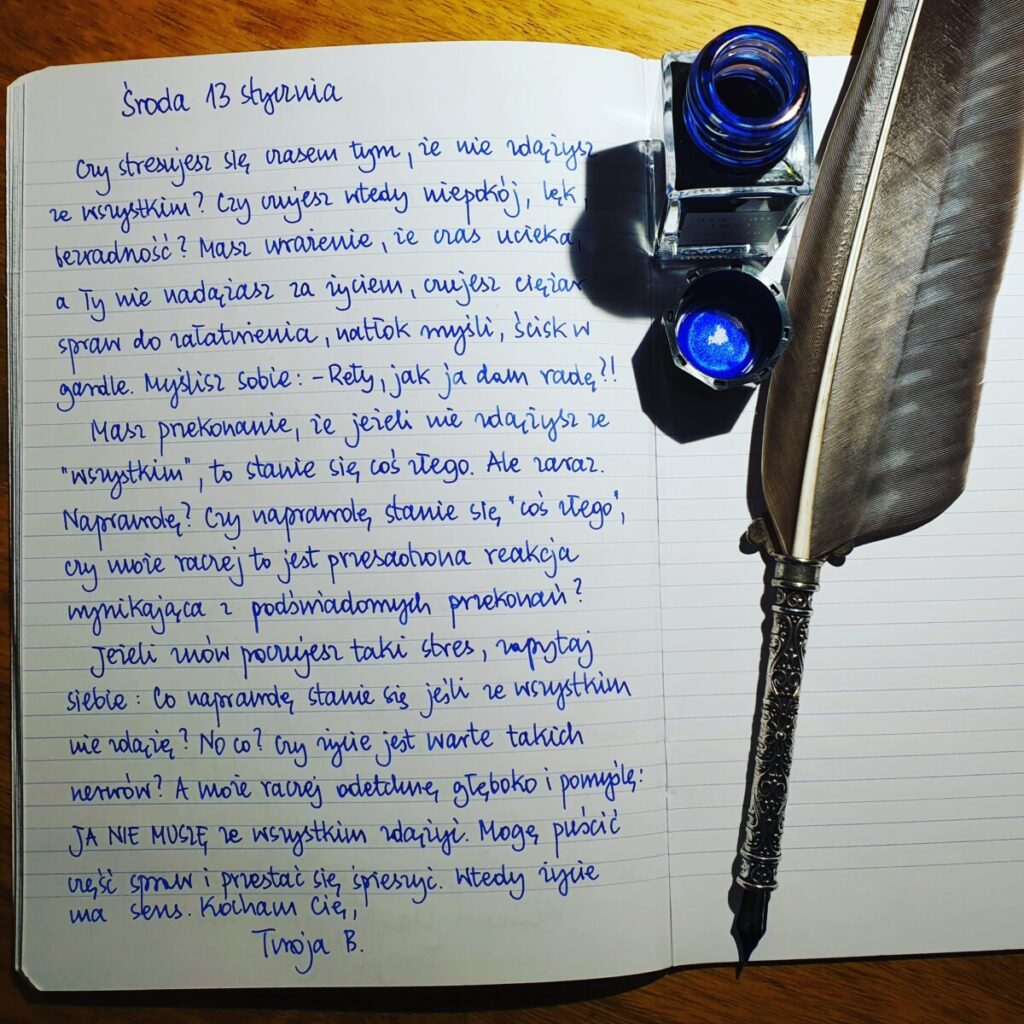 Środa 13 stycznia
Czy stresujesz się czasem tym, że nie zdążysz
ze wszystkim? Czy czujesz wtedy niepokój, lęk,
bezradność? Masz wrażenie, że czas ucieka,
a Ty nie nadążasz za życiem, czujesz ciężar
spraw do załatwienia, natłok myśli, ścisk w
gardle. Myślisz sobie: - Rety, jak ja dam radę?!
Masz przekonanie, że jeżeli nie zdążysz ze
"wszystkim", to stanie się coś złego. Ale zaraz.
Naprawdę? Czy naprawdę stanie się "coś złego",
czy może raczej to jest przesadzona reakcja
wynikająca z podświadomych przekonań?
Jeżeli znów poczujesz taki stres, zapytaj
siebie: Co naprawdę stanie się jeśli ze wszystkim
nie zdążę? No co? Czy życie jest warte takich
nerwów? A może raczej odetchnę głęboko i pomyślę:
JA NIE MUSZĘ ze wszystkim zdążyć. Mogę puścić
część spraw i przestać się śpieszyć. Wtedy życie
ma sens. Kocham Cię,
Twoja B.